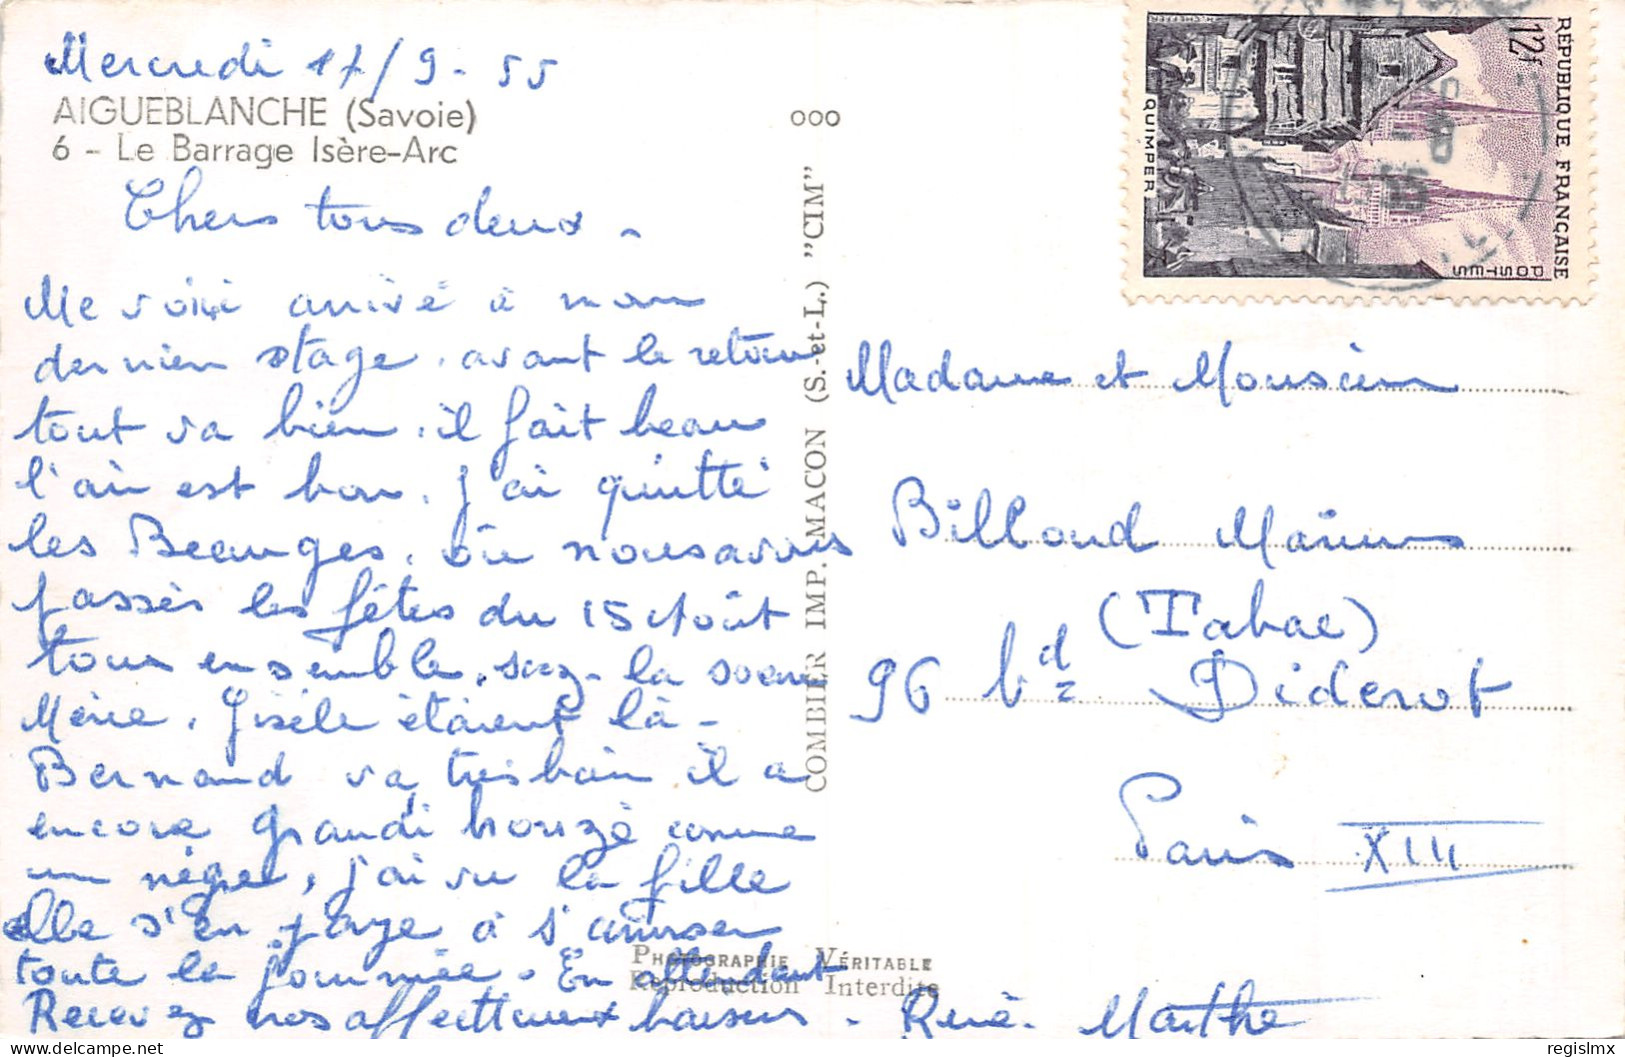 Mercredi 17/9-55
AIGUEBLANCHE (Savoie)
6 - Le Barrage Isère-Arc
Chers tous deux -
Me voici arrivé à mon
dernier stage. avant le retour
tout va bien. il fait beau
l'air est bon. J'ai quitté
les Beauges. où nous avons
passés les fêtes du 15 Août
tous ensemble. la soeur
Mérie. Gisèle étaient là -
Bernard va très bien il a
encore grandi bronzé comme
un nègre, j'ai vu la fille
elle s'en paye à s'amuser
toute la journée - En attendant
Recevez nos affectueux baisers - René. Marthe
000
COMBIER IMP. MACON (S.-et-L.) "CIM"
PHOTOGRAPHIE VÉRITABLE
Reproduction Interdite
RÉPUBLIQUE FRANÇAISE
12f
POSTES
QUIMPER
Madame et Monsieur
Billoud Marius
(Tabac)
96 bd Diderot
Paris XIII
© regislmx
delcampe.net